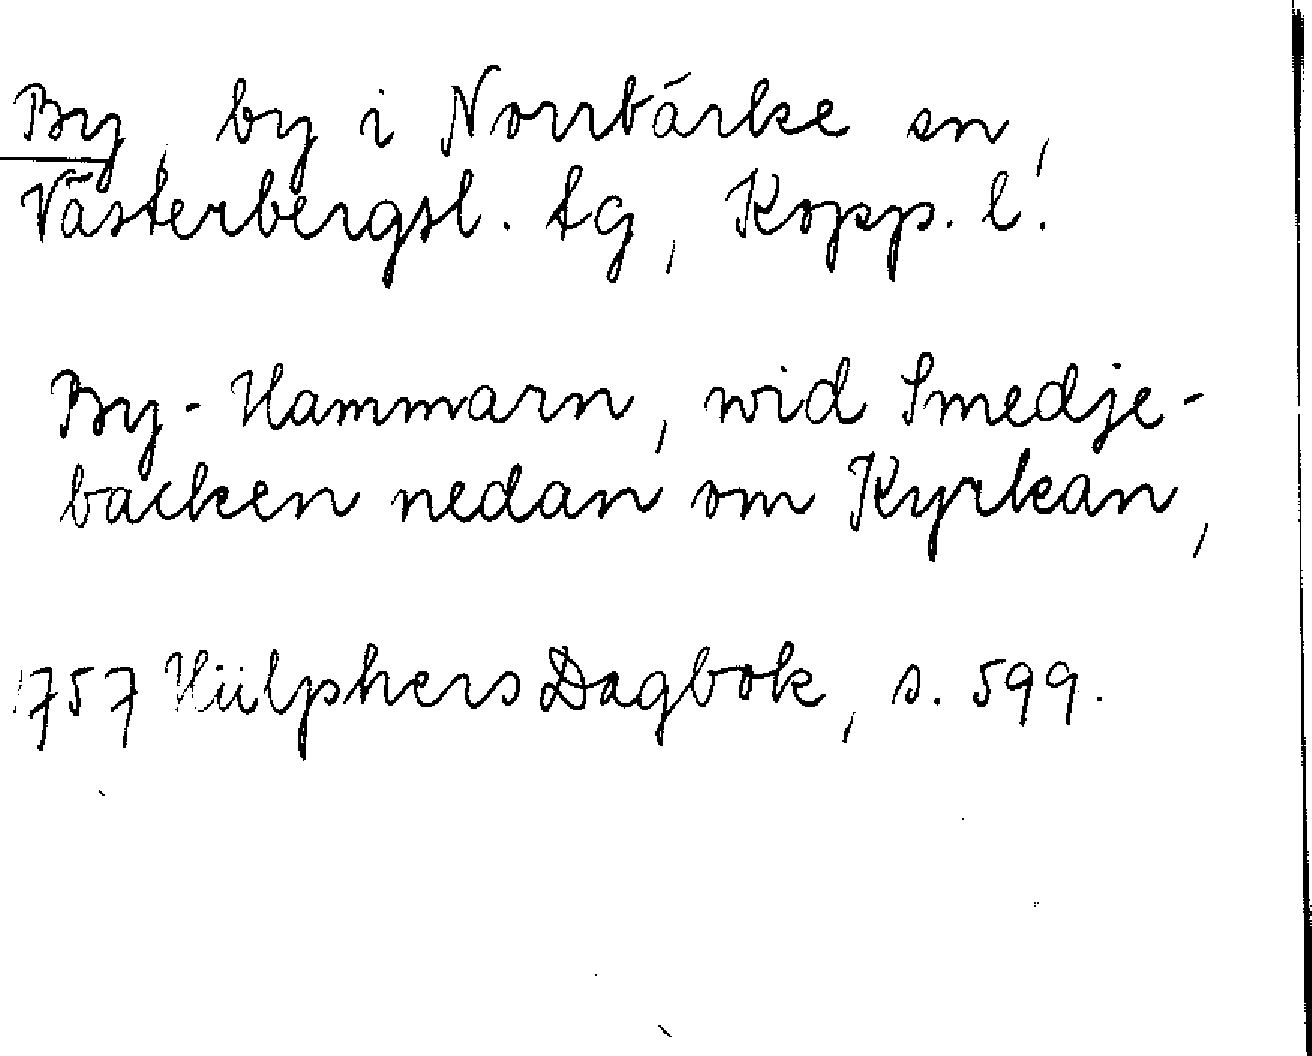 By, by i Norrbärke sn,
Västerbergsl. tg, Kopp. l.
By-Hammarn, wid Smedje-
backen nedan om Kyrkan,
1757 Hülphers Dagbok, s. 599.